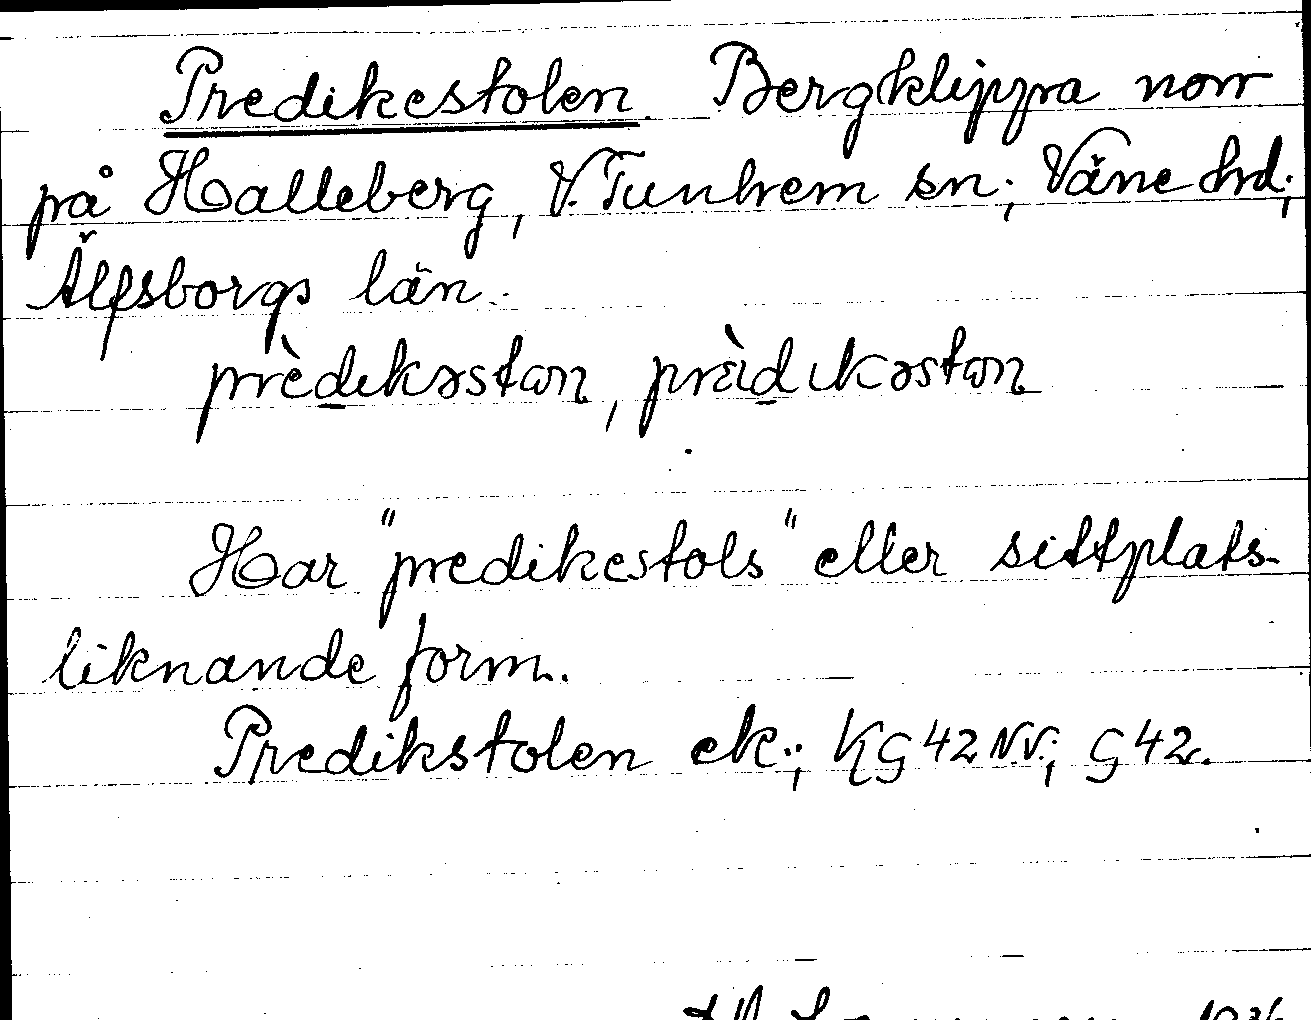 Predikestolen. Bergklippa norr
på Halleberg, V. Tunhem sn; Väne hd;
Älfsborgs län.
prèdikəstan, prèidikəstan
Har "predikestols" eller sittplats-
liknande form.
Predikstolen ek.; KG 42 N.V.; G 42.